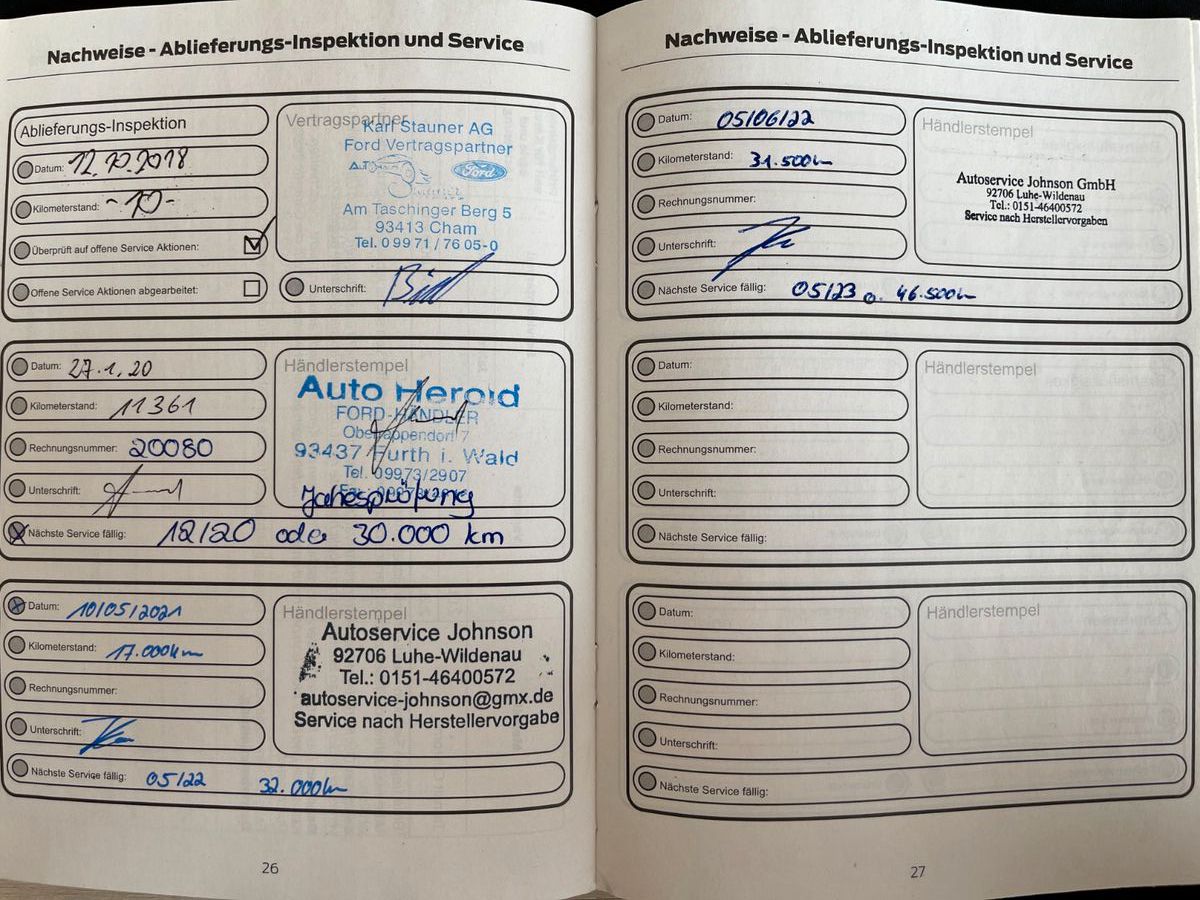 Nachweise - Ablieferungs-Inspektion und Service
Ablieferungs-Inspektion
Datum: 12.10.2018
Kilometerstand: -10-
Überprüft auf offene Service Aktionen:
Offene Service Aktionen abgearbeitet:
Vertragspartner
Karl Stauner AG
Ford Vertragspartner
Ford
Am Taschinger Berg 5
93413 Cham
Tel. 0 99 71 / 76 05-0
Unterschrift:
Datum: 27.1.20
Kilometerstand: 11361
Rechnungsnummer: 20080
Unterschrift:
Händlerstempel
Auto Herold
FORD-HÄNDLER
93437 Furth i. Wald
Tel. 09973/2907
Jahresprüfung
Nächste Service fällig: 12/20 oder 30.000 km
Datum: 10/05/2021
Kilometerstand: 17.000km
Rechnungsnummer:
Unterschrift:
Händlerstempel
Autoservice Johnson
92706 Luhe-Wildenau
Tel.: 0151-46400572
autoservice-johnson@gmx.de
Service nach Herstellervorgabe
Nächste Service fällig: 05/22 32.000km
26
Nachweise - Ablieferungs-Inspektion und Service
Datum: 05/06/22
Kilometerstand: 31.500km
Rechnungsnummer:
Unterschrift:
Händlerstempel
Autoservice Johnson GmbH
92706 Luhe-Wildenau
Tel.: 0151-46400572
Service nach Herstellervorgaben
Nächste Service fällig: 05/23 o. 46.500km
Datum:
Kilometerstand:
Rechnungsnummer:
Unterschrift:
Händlerstempel
Nächste Service fällig:
Datum:
Kilometerstand:
Rechnungsnummer:
Unterschrift:
Händlerstempel
Nächste Service fällig:
27